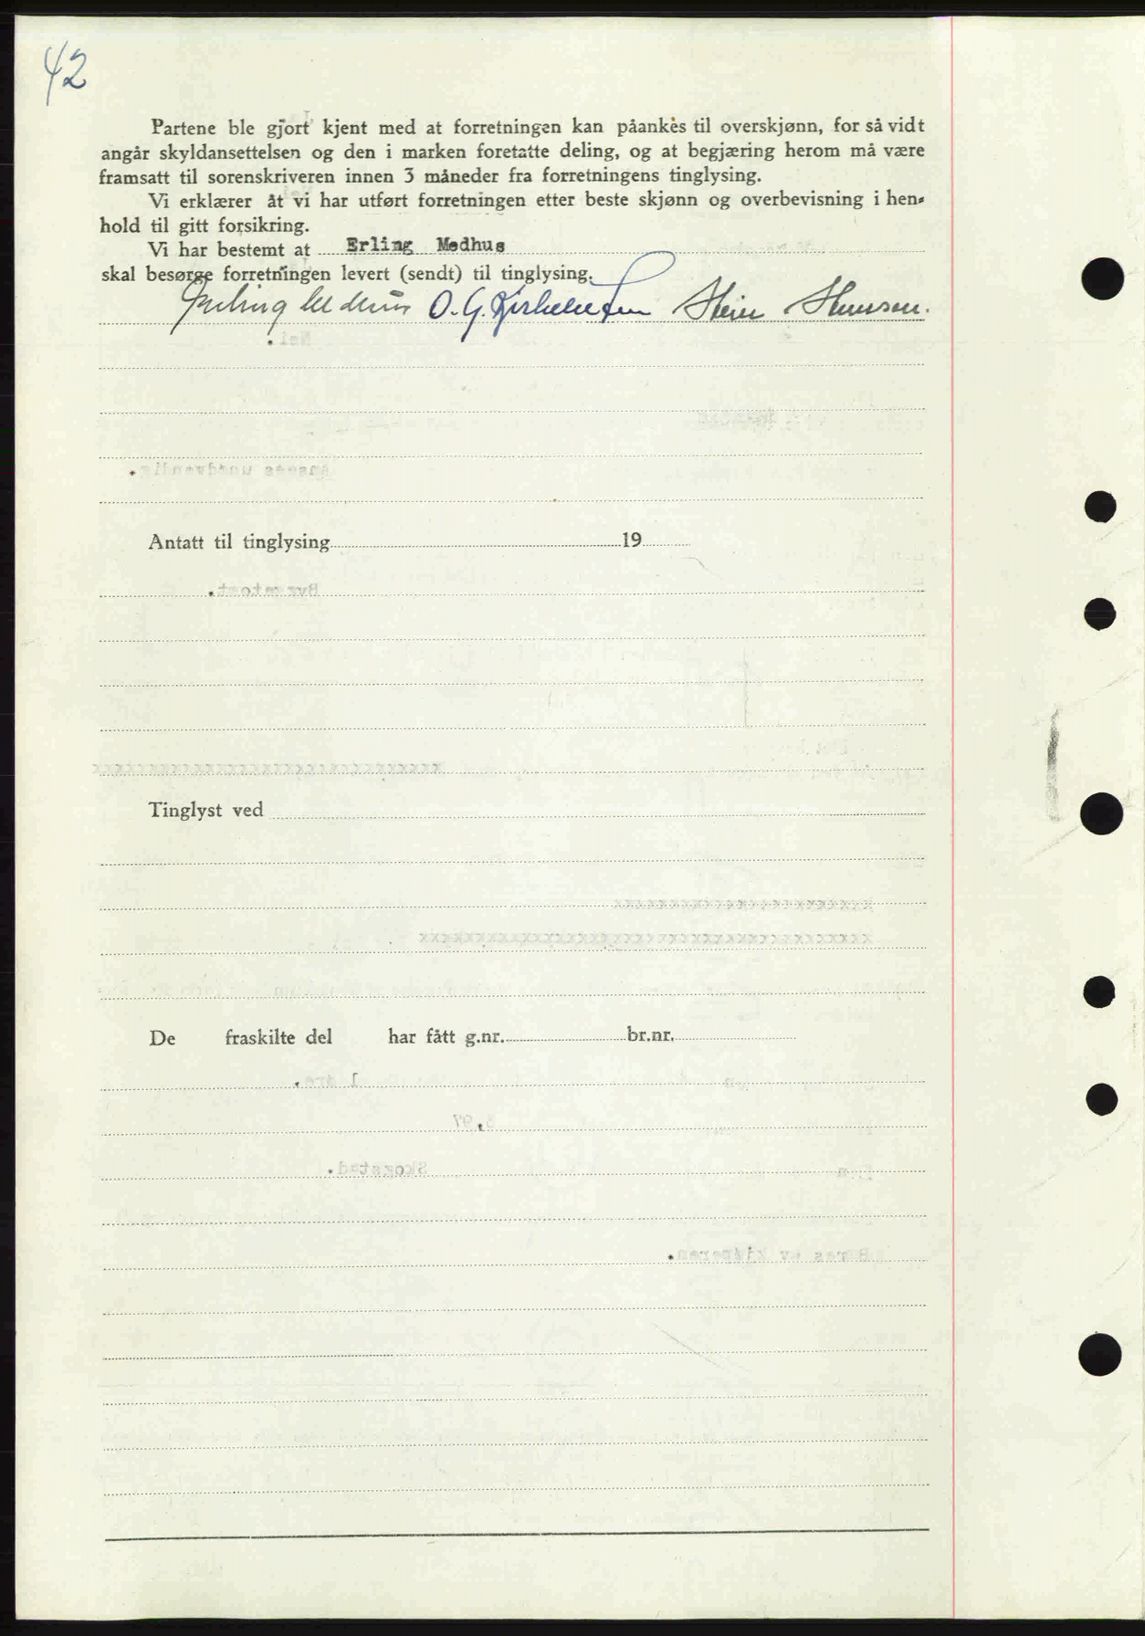 42
Partene ble gjort kjent med at forretningen kan påankes til overskjønn, for så vidt
angår skyldansettelsen og den i marken foretatte deling, og at begjæring herom må være
framsatt til sorenskriveren innen 3 måneder fra forretningens tinglysing.
Vi erklærer at vi har utført forretningen etter beste skjønn og overbevisning i hen-
hold til gitt forsikring.
Vi har bestemt at Erling Medhus
skal besørge forretningen levert (sendt) til tinglysing.
Erling Medhus O. G.
Antatt til tinglysing 19
Tinglyst ved
De fraskilte del har fått g.nr. br.nr.